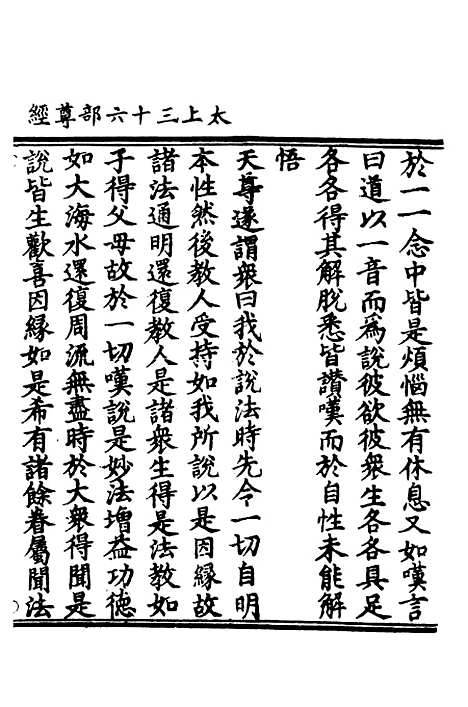 太上三十六部尊經
於一一念中皆是煩惱無有休息又如嘆言
曰道以一音而爲說彼欲彼衆生各各具足
各各得其解脫悉皆讚嘆而於自性未能解
悟
天尊遂謂衆曰我於說法時先令一切自明
本性然後教人受持如我所說以是因縁故
諸法通明還復教人是諸衆生得是法教如
子得父母故於一切嘆說是妙法增益功德
如大海水還復周流無盡時於大衆得聞是
說皆生歡喜因縁如是希有諸餘眷屬聞法